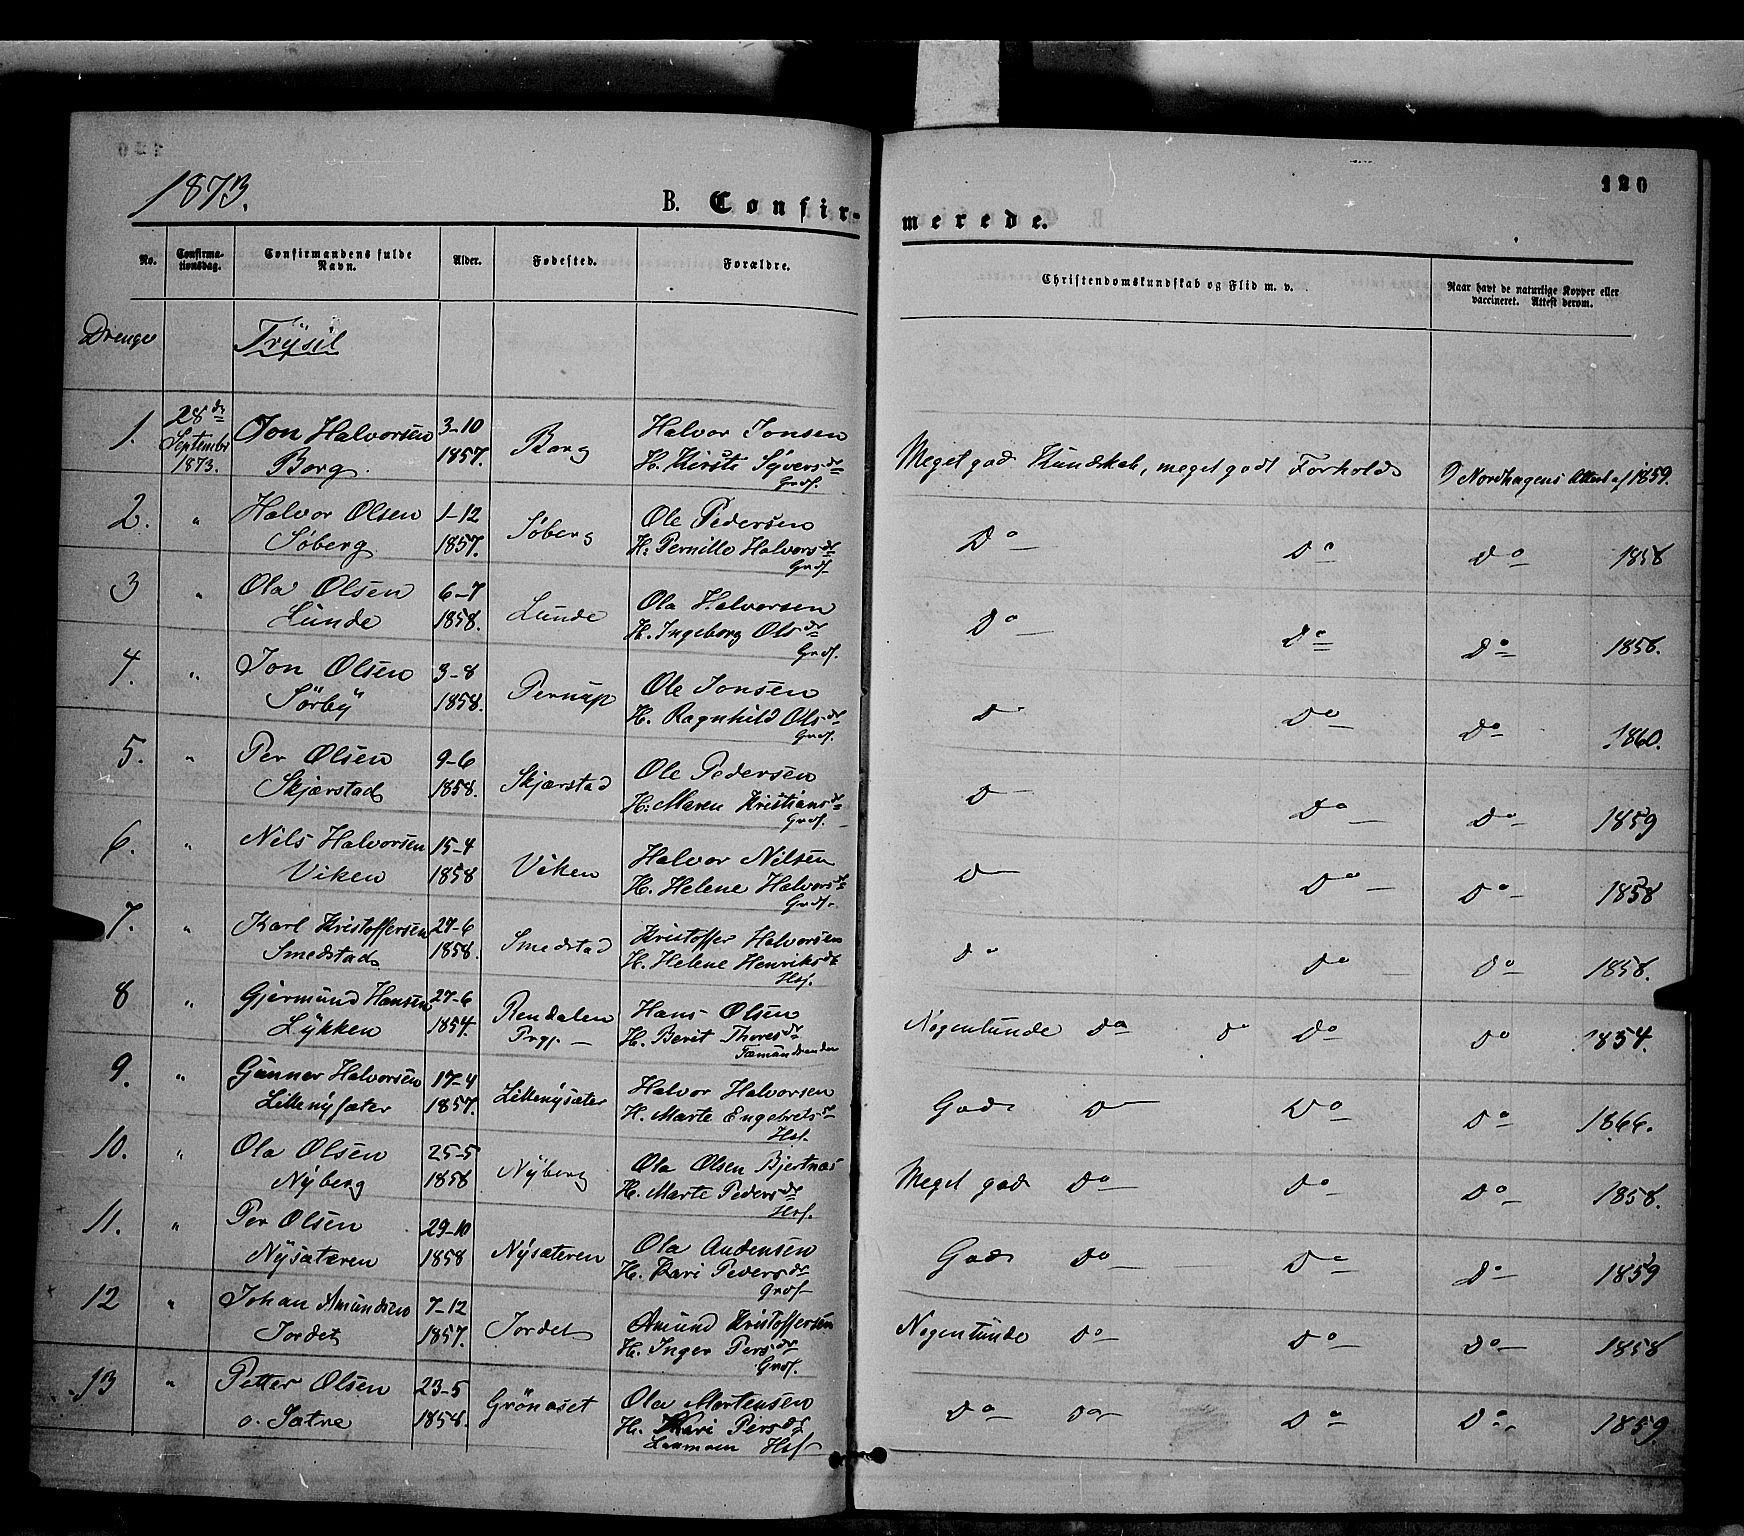 1873.
B. Confir-
merede.
120
No.
Confirma-
tionsdag.
Confirmandens fulde
Navn.
Alder.
Fødested.
Forældre.
Christendomskundskab og Flid m. v.
Naar havt de naturlige Kopper eller
vaccineret. Attest derom.
Drenge
Trysil
1. 28de Jon Halvorsen 3-10 Borg Halvor Jonsen
September Borg. 1857. H. Kirsti Syversdr
1873. Grdf.
Meget god Kundskab, meget godt Forhold Nordhagens Attest af 1859.
2. " Halvor Olsen 1-12 Søberg Ole Pedersen
Søberg 1857. H: Pernille Halvorsdr
Grdf.
Do Do Do 1858
3 " Ola Olsen 6-7 Lunde Ola Halvorsen
Lunde 1858. H. Ingeborg Olsdr
Grdf.
Do Do Do 1858.
4. " Jon Olsen 3-8 Pernup Ole Jonsen
Sørby 1858. H. Ragnhild Olsdr
Grdf.
Do Do Do 1860.
5. " Per Olsen 9-6 Skjærstad Ole Pedersen
Skjærstad 1858. H: Maren Kristiansdr
Grdf.
Do Do Do 1859
6. " Nils Halvorsen 15-4 Viken Halvor Nilsen
Viken 1858 H. Helene Halvorsdr
Grdf.
Do Do Do 1858
7. " Karl Kristoffersen 27-6 Smedstad Kristoffer Halvorsen
Smedstad 1858. H. Helene Henriksdr
Hsf.
Do Do Do 1858.
8 " Gjermund Hansen 27-6 Rendalen Hans Olsen
Lykken 1854. Prgj. H. Berit Thoresdr
Fæmundsenden
Nogenlunde Do Do Do Do 1854.
9. " Gunner Halvorsen 17-4 Lillenysæter Halvor Halvorsen
Lillenysæter 1857. H. Marte Engebretsdr
Hsf.
God Do Do Do 1866.
10. " Ola Olsen 25-5 Nyberg Ola Olsen Bjertnæs
Nyberg 1858 H. Marte Pedersdr
Hsf.
Meget god Do Do Do 1858.
11. " Per Olsen 29-10 Nysæteren Ola Andersen
Nysæteren 1858 H. Kari Pedersdr
Grdf
God Do Do Do 1859
12 " Johan Amundsen 7-12 Jordet Amund Kristoffersen
Jordet 1857. H. Inger Persdr
Grdf.
Nogenlunde Do Do Do 1858
13 " Petter Olsen 23-5 Grönoset Ola Mortensen
o. Sætre 1858. H. Kari Persdr
Hsf
Do Do Do Do 1859.